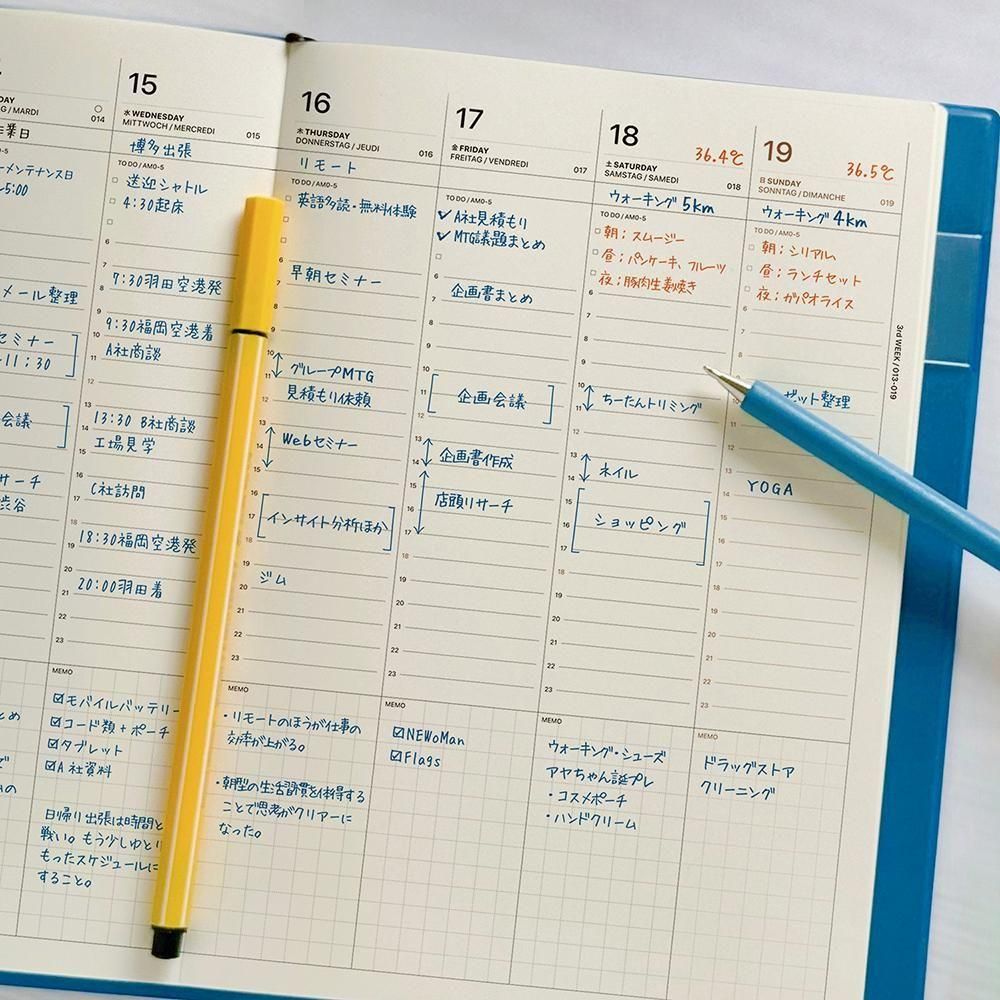 DAY
G / MARDI
014
作業日
メンテナンス日
5:00
メール整理
セミナー
11:30
会議
サーチ
渋谷
15
水 WEDNESDAY
MITTWOCH / MERCREDI
015
博多出張
TO DO / AM0-5
送迎シャトル
4:30起床
6
7:30羽田空港発
8
9:30福岡空港着
10
A社商談
11
12
13:30 B社商談
工場見学
16
C社訪問
17
18
18:30福岡空港発
19
20
20:00羽田着
21
22
23
MEMO
☑モバイルバッテリー
☑コード類+ポーチ
☑タブレット
☑A社資料
日帰り出張は時間と
戦い。もう少しゆとり
もったスケジュールに
すること。
16
木 THURSDAY
DONNERSTAG / JEUDI
016
リモート
TO DO / AM0-5
英語多読・無料体験
6
早朝セミナー
7
8
9
10
グループMTG
11
見積もり依頼
12
13
Webセミナー
14
15
16
インサイト分析ほか
17
18
19
ジム
20
21
22
23
MEMO
・リモートのほうが仕事の
効率が上がる。
・朝型の生活習慣を体得する
ことで思考がクリアーに
なった。
17
金 FRIDAY
FREITAG / VENDREDI
017
TO DO / AM0-5
✓ A社見積もり
✓ MTG議題まとめ
6
企画書まとめ
7
8
9
10
11
企画会議
12
13
企画書作成
14
15
店頭リサーチ
16
17
18
19
20
21
22
23
MEMO
☑NEWoMan
☑Flags
18
36.4℃
土 SATURDAY
SAMSTAG / SAMEDI
018
ウォーキング 5km
TO DO / AM0-5
朝:スムージー
昼:パンケーキ、フルーツ
夜:豚肉生姜焼き
6
7
8
9
10
ちーたんトリミング
11
12
13
ネイル
14
15
16
ショッピング
17
18
19
20
21
22
23
MEMO
ウォーキング・シューズ
アヤちゃん誕プレ
・コスメポーチ
・ハンドクリーム
19
36.5℃
日 SUNDAY
SONNTAG / DIMANCHE
019
ウォーキング 4km
TO DO / AM0-5
朝:シリアル
昼:ランチセット
夜:ガパオライス
6
7
8
ゼット整理
11
12
13
YOGA
14
15
16
17
18
19
20
21
22
23
MEMO
ドラッグストア
クリーニング
3rd WEEK / 013-019